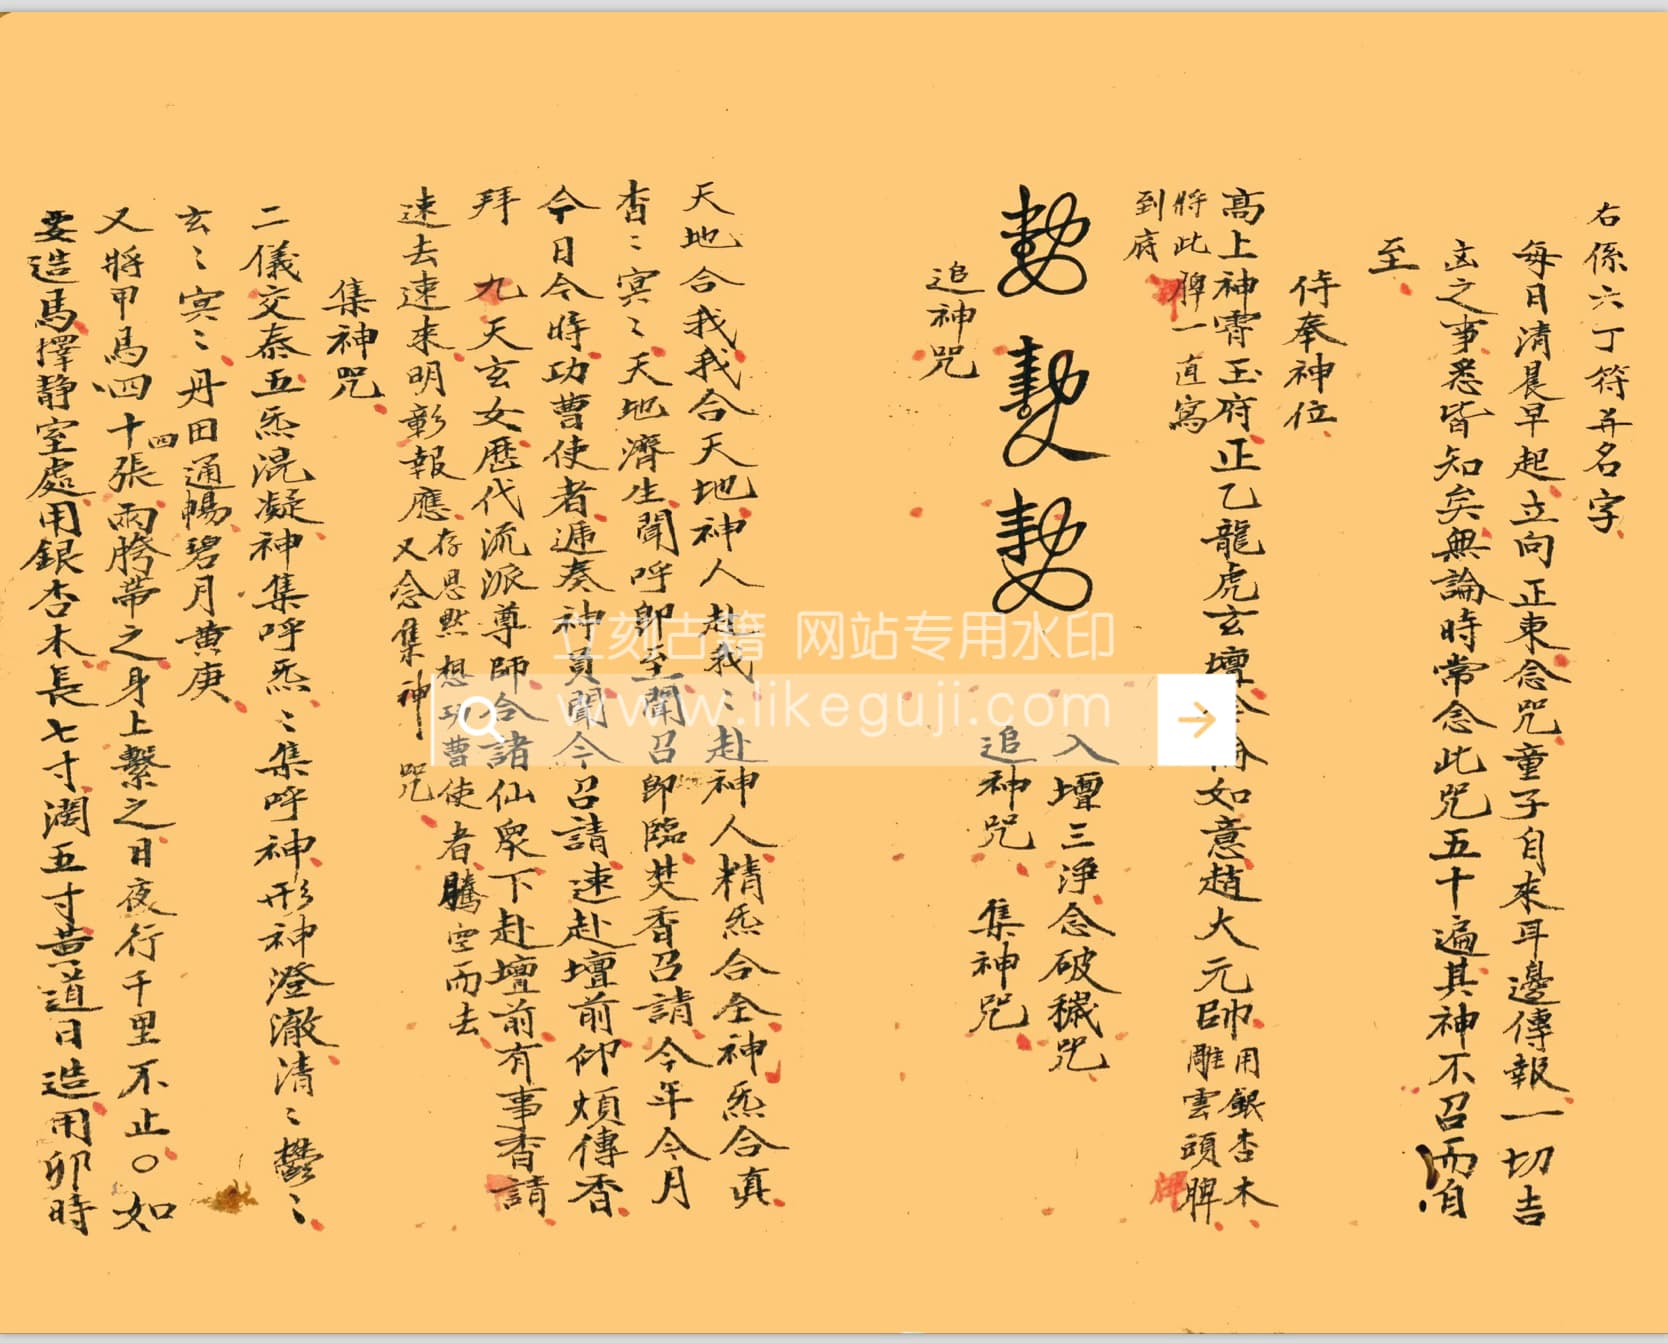 右係六丁符并名字
每日清晨早起立向正東念咒童子自來耳邊傳報一切吉
凶之事悉皆知矣無論時常念此咒五十遍其神不召而自
至
侍奉神位
高上神霄玉府正乙龍虎玄壇 如意趙大元帥
用銀杏木
雕雲頭牌
將此牌一直寫
到府
入壇三淨念破穢咒
追神咒 集神咒
追神咒
天地合我我合天地神人赴我〻赴神人精炁合全神炁合真
杳〻冥〻天地濟生聞呼卽至聞召卽臨焚香召請今年今月
今日今時功曹使者遞奏神員聞今召請速赴壇前仰煩傳香
拜 九天玄女歷代流派尊師合諸仙衆下赴壇前有事香請
速去速來明彰報應
存思默想功曹使者騰空而去
又念集神咒
集神咒
二儀交泰五炁混凝神集呼炁〻集呼神形神澄澈清〻鬱〻
玄〻冥〻丹田通暢碧月黄庚
又將甲馬四十四張兩胯帶之身上繫之日夜行千里不止〇如
要造馬擇静室處用銀杏木長七寸濶五寸黄道日造用卯時
立刻古籍 网站专用水印
www.likeguji.com